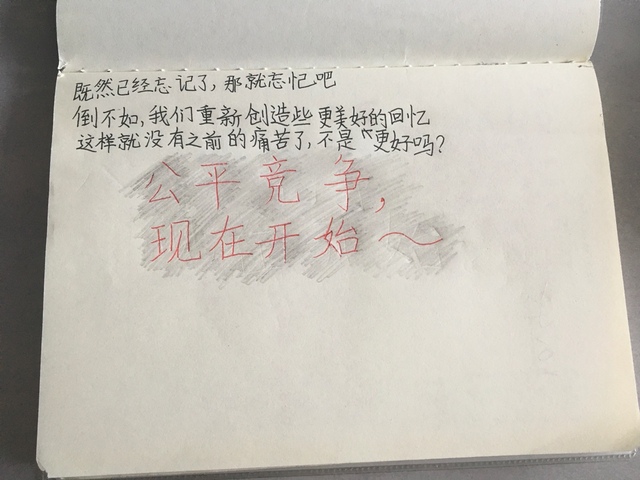 既然已经忘记了，那就忘记吧
倒不如，我们重新创造些更美好的回忆
这样就没有之前的痛苦了，不是更好吗？
公平竞争，
现在开始～